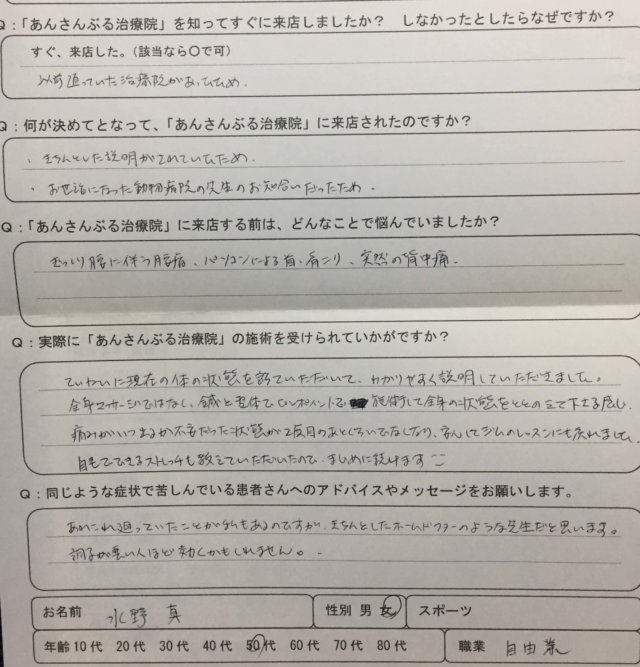 Q：「あんさんぶる治療院」を知ってすぐに来店しましたか？　しなかったとしたらなぜですか？
すぐ、来店した。（該当なら〇で可）
以前通っていた治療院があったため。
Q：何が決めてとなって、「あんさんぶる治療院」に来店されたのですか？
・きちんとした説明がされていたため。
・お世話になった動物病院の先生のお知合いだったため。
Q：「あんさんぶる治療院」に来店する前は、どんなことで悩んでいましたか？
ぎっくり腰に伴う腰痛、パソコンによる首、肩こり、突然の背中痛。
Q：実際に「あんさんぶる治療院」の施術を受けられていかがですか？
ていねいに現在の体の状態を診ていただいて、わかりやすく説明していただきました。
全身マッサージではなく、鍼と整体でピンポイントで 施術して全身の状態をととのえて下さる感じ。
痛みがいつ出るか不安だった状態が2度目のあとくらいでなくなり、安心してジムのレッスンにも戻れました。
自宅でできるストレッチも教えていただいたので、まじめに続けます
Q：同じような症状で苦しんでいる患者さんへのアドバイスやメッセージをお願いします。
あちこち通っていたことが私もあるのですが、きちんとしたホームドクターのような先生だと思います。
調子が悪い人ほど効くかもしれません。
お名前 水野 真 性別 男 女 スポーツ
年齢 10代 20代 30代 40代 50代 60代 70代 80代 職業 自由業